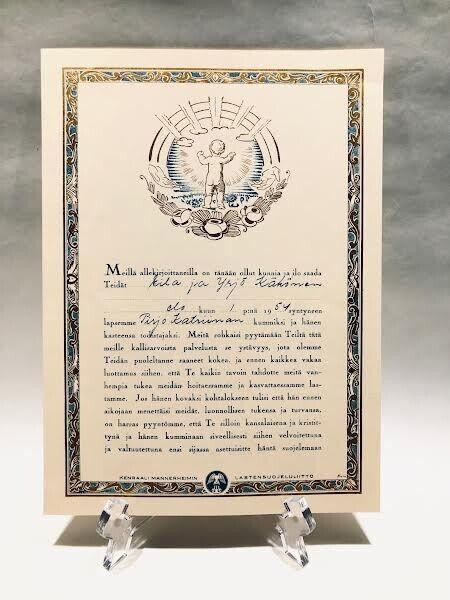 Meillä allekirjoittaneilla on tänään ollut kunnia ja ilo saada
Teidät Aila ja Yrjö Kähönen
elo kuun 1 p:nä 1954 syntyneen
lapsemme Pirjo Katriinan kummiksi ja hänen
kasteensa todistajaksi. Meitä rohkaisi pyytämään Teiltä tätä
meille kallisarvoista palvelusta se ystävyys, jota olemme
Teidän puoleltanne saaneet kokea, ja ennen kaikkea vakaa
luottamus siihen, että Te kaikin tavoin tahdotte meitä van-
hempia tukea meidän hoitaessamme ja kasvattaessamme las-
tamme. Jos hänen kovaksi kohtalokseen tulisi että hän ennen
aikojaan menettäisi meidät, luonnollisen tukensa ja turvansa,
on harras pyyntömme, että Te silloin kansalaisena ja kristit-
tynä ja hänen kumminaan siveellisesti siihen velvoitettuna
ja valtuutettuna ensi sijassa asettuisitte häntä suojelemaan
KENRAALI MANNERHEIMIN LASTENSUOJELULIITTO